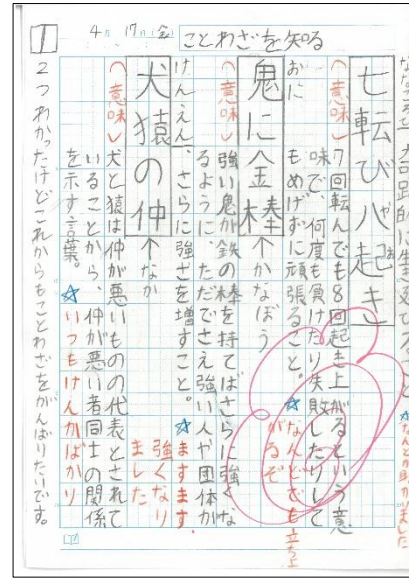 1
4月 17日(金)
ことわざを知る
☆なんとか助かりました
七転び八起き
(意味)7回転んでも8回起き上がるという意
味で、何度も負けたり失敗したりして
もめげずに頑張ること。☆なんどでも立ち上
がるぞ
おに
鬼に金棒
かなぼう
(意味)強い鬼が鉄の棒を持てばさらに強くな
るように、ただでさえ強い人や団体が
、さらに強さを増すこと。☆ますます
強くなり
ました
けんえん
犬猿の仲
なか
(意味)犬と猿は仲が悪いものの代表とされて
いることから、仲が悪い者同士の関係
を示す言葉。☆いつもけんかばかり
2つわかったけどこれからもことわざをがんばりたいです。